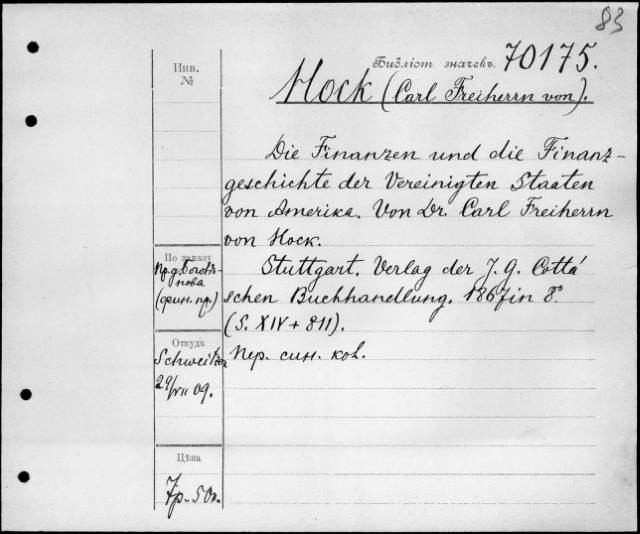 83
Библіот. значекъ 70175.
Инв.
№
Hock (Carl Freiherrn von).
Die Finanzen und die Finanz-
geschichte der Vereinigten Staaten
von Amerika. Von Dr. Carl Freiherrn
von Hock.
По заказу
Пр. д.
нова
(фин. пр.)
Stuttgart. Verlag der J. G. Cotta'
schen Buchhandlung. 1867 in 8°
(S. XIV + 811).
Откуда
Schweitzer
29/VII 09.
Пер. син. кол.
Цѣна
7р. 50к.